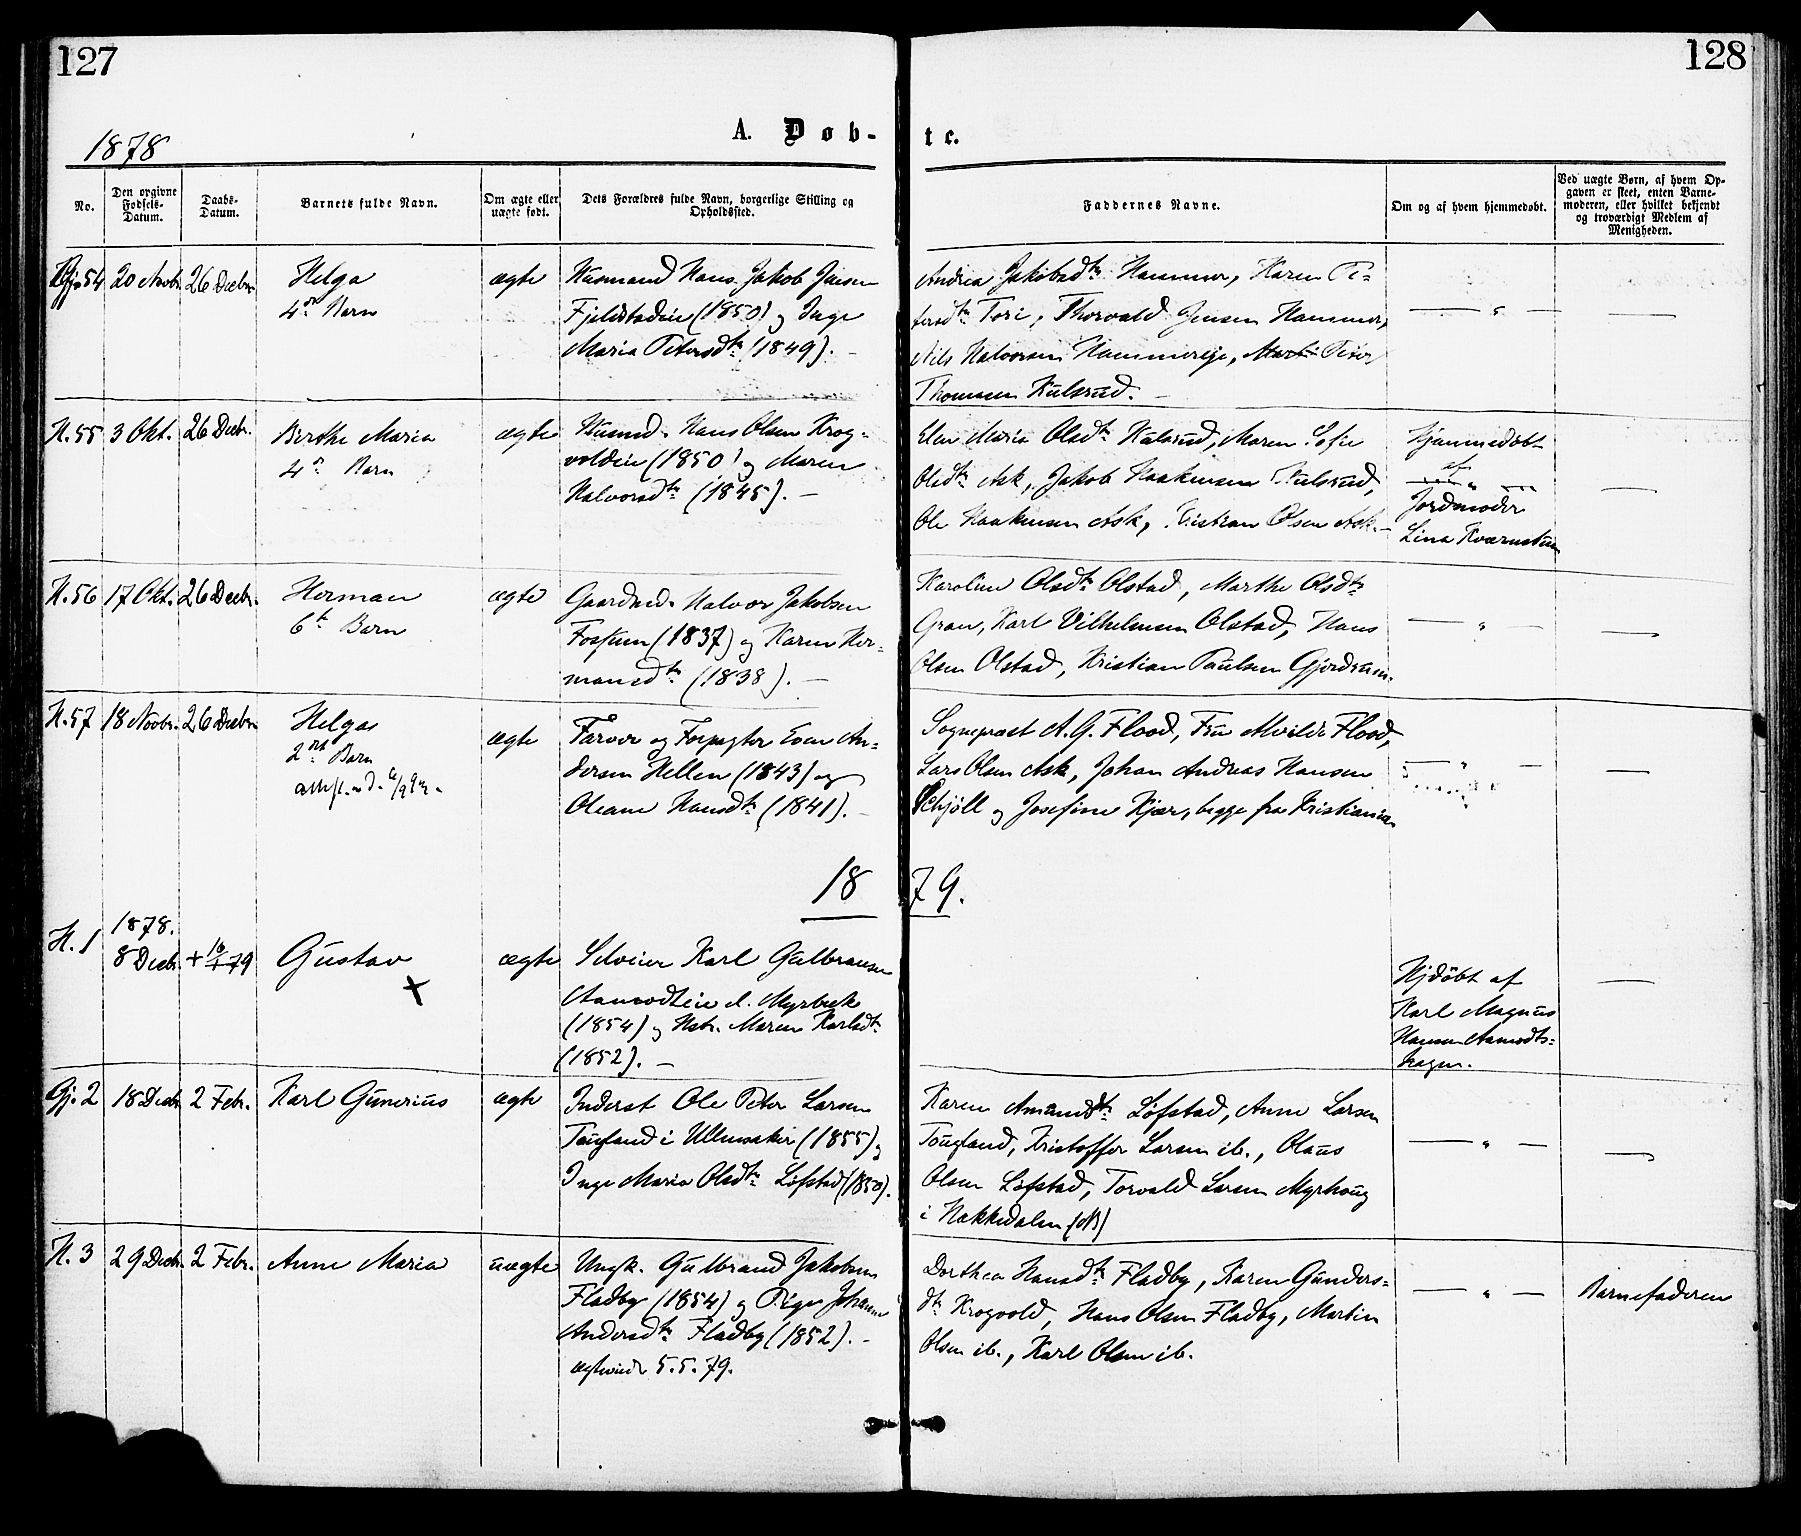 127
128
1878
A. Døb-
te.
No.
Den opgivne Fødsels-Datum.
Daabs-Datum.
Barnets fulde Navn.
Om ægte eller uægte født.
Dets Forældres fulde Navn, borgerlige Stilling og Opholdssted.
Faddernes Navne.
Om og af hvem hjemmedøbt.
Ved uægte Børn, af hvem Opgaven er skeet, enten Barnemoderen, eller hvilket bekjendt og troværdigt Medlem af Menigheden.
Gj. 54
20 Novbr.
26 Decbr.
Helga
4de Barn
ægte
Husmand Hans Jakob Jensen
Fjeldstadeie (1850) og Inge
Maria Petersdtr (1849). –
Andrea Jakobsdtr Hammer, Karen Pe-
tersdtr Tori, Thorvald Jensen Hammer,
Nils Halvorsen Hammereje, Peter
Thomasen Kulsrud. –
— " —
—
H. 55
3 Okt.
26 Decbr.
Berthe Maria
4de Barn
ægte
Husmd. Hans Olsen Krog-
voldeie (1850) og Maren
Halvorsdtr (1845). –
Elen Maria Olsdtr Kulsrud, Maren Sofie
Olsdtr Ask, Jakob Haakensen Kulsrud,
Ole Haakensen Ask, Kristian Olsen Ask. –
Hjemmedøbt
af
Jordmoder
Lina Kværnstuen
—
H. 56
17 Okt.
26 Decbr.
Herman
6te Barn
ægte
Gaardmd. Halvor Jakobsen
Fossum (1837) og Karen Her-
mansdtr (1838). –
Karoline Olsdtr Olstad, Marthe Olsdtr
Gran, Karl Vilhelmsen Olstad, Hans
Olsen Olstad, Kristian Paulsen Gjerdrum.
— " —
—
H. 57
18 Novbr.
26 Decbr.
Helga
2det Barn
ægte
Farver og Forpagter Even An-
dersen Hellen (1843) og
Oleane Hansdtr (1841). –
Sogneprest A. G. Flood, Fru Alvilde Flood,
Lars Olsen Ask, Johan Andreas Hansen
Schjøll og Josefine Kjær, begge fra Kristiania
— " —
—
18
79.
H. 1
1878.
8 Decbr.
+ 10/1 79
Gustav
+
ægte
Selveier Karl Gulbransen
Aamodteie d. Myrbæk
(1854) og Hstr. Maren Karlsdtr
(1852). –
Hjdøbt af
Karl Magnus
Hansen Aamodts-
hagen.
—
Gj. 2
18 Decbr.
2 Febr.
Karl Gunerius
ægte
Inderst Ole Peter Larsen
Tougland i Ullensaker (1855) og
Inge Maria Olsdtr Løfstad (1850).
Karen Amundsdtr Løfstad, Anne Larsen
Tougland, Kristoffer Larsen ib., Olaus
Olsen Løfstad, Torvald Larsen Myrhoug
i Hakkedalen (N)
— " —
—
H. 3
29 Decbr.
2 Febr.
Anne Maria
uægte
Ungk. Gulbrand Jakobsen
Fladby (1854) og Pige Johanne
Andersdtr Fladby (1852). –
ægteviede 5.5.79.
Dorthea Hansdtr Fladby, Karen Gunders-
dtr Krogvold, Hans Olsen Fladby, Martin
Olsen ib., Karl Olsen ib.
— " —
Barnefaderen